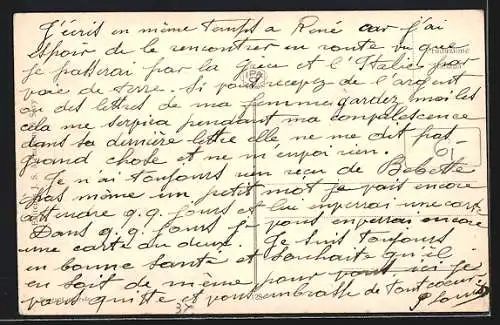 J'écris en même temps a René car j'ai
espoir de le rencontrer en route vu que
je passerai par la Grèce et l'Italie par
voie de terre. Si vous recepez de l'argent
ou des lettres de ma femme gardez moi les
cela me serpira pendant ma conpalescence
dans sa dernière lettre elle ne me dit pas
grand chose et ne m'enpoi rien.
Je n'ai toujours rien reçu de Bebette
pas même un petit mot je vais encore
attendre q.q. jours et lui enperrai une carte
Dans q.q. jours je vous enperrai encore
une carte ou deux. Je suis toujours
en bonne santé et souhaite qu'il
en soit de même pour vous ici je
vous quitte et vous embrasse de tout coeur.
Louis
61
37